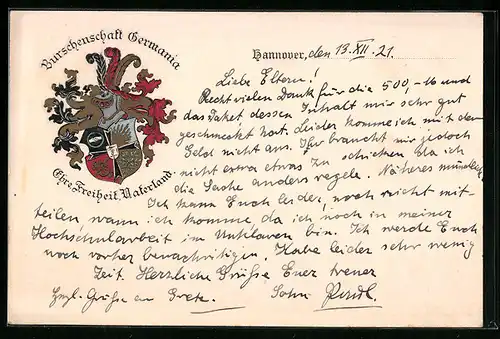 Burschenschaft Germania
Ehre, Freiheit, Vaterland.
Hannover, den 13. XII. 21.
Liebe Eltern!
Recht vielen Dank für die 500,- M und
das Paket dessen Inhalt mir sehr gut
geschmeckt hat. Leider komme ich mit dem
Geld nicht aus. Ihr braucht mir jedoch
nicht extra etwas zu schicken da ich
die Sache anders regele. Näheres mündlich
Ich kann Euch leider noch nicht mit-
teilen wann ich komme da ich noch in meiner
Hochschularbeit im bin. Ich werde Euch
noch vorher benachrichtigen. Habe leider sehr wenig
Zeit. Herzliche Grüße Euer treuer
Sohn
Herzl. Grüße an Grete.